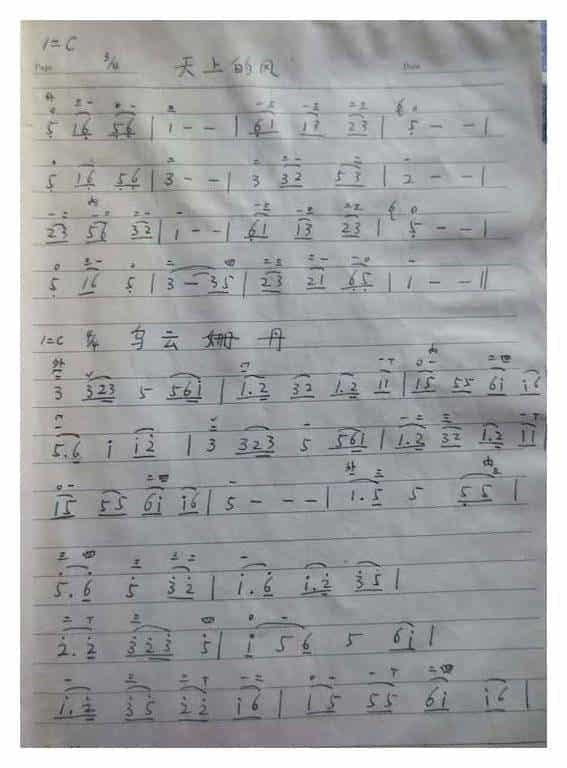 1=C
Page 3/4 天上的风 Date
5 16 56 | 1 - - | 61 13 23 | 5 - - |
5 16 56 | 3 - - | 3 32 53 | 2 - - |
23 56 32 | 1 - - | 61 13 23 | 5 - - |
5 16 5 | 3 - 35 | 23 21 65 | 1 - - ||
1=C 乌云 珊丹
3 323 5 561 | 1.2 32 1.2 11 | 15 55 61 16
5.6 1 12 | 3 323 5 561 | 1.2 32 1.2 11
15 55 61 16 | 5 - - - | 1.5 5 55 |
5.6 5 32 | 1.6 1.2 35 |
2.2 323 5 | 1 56 5 61 |
1.2 35 22 16 | 15 55 61 16 |